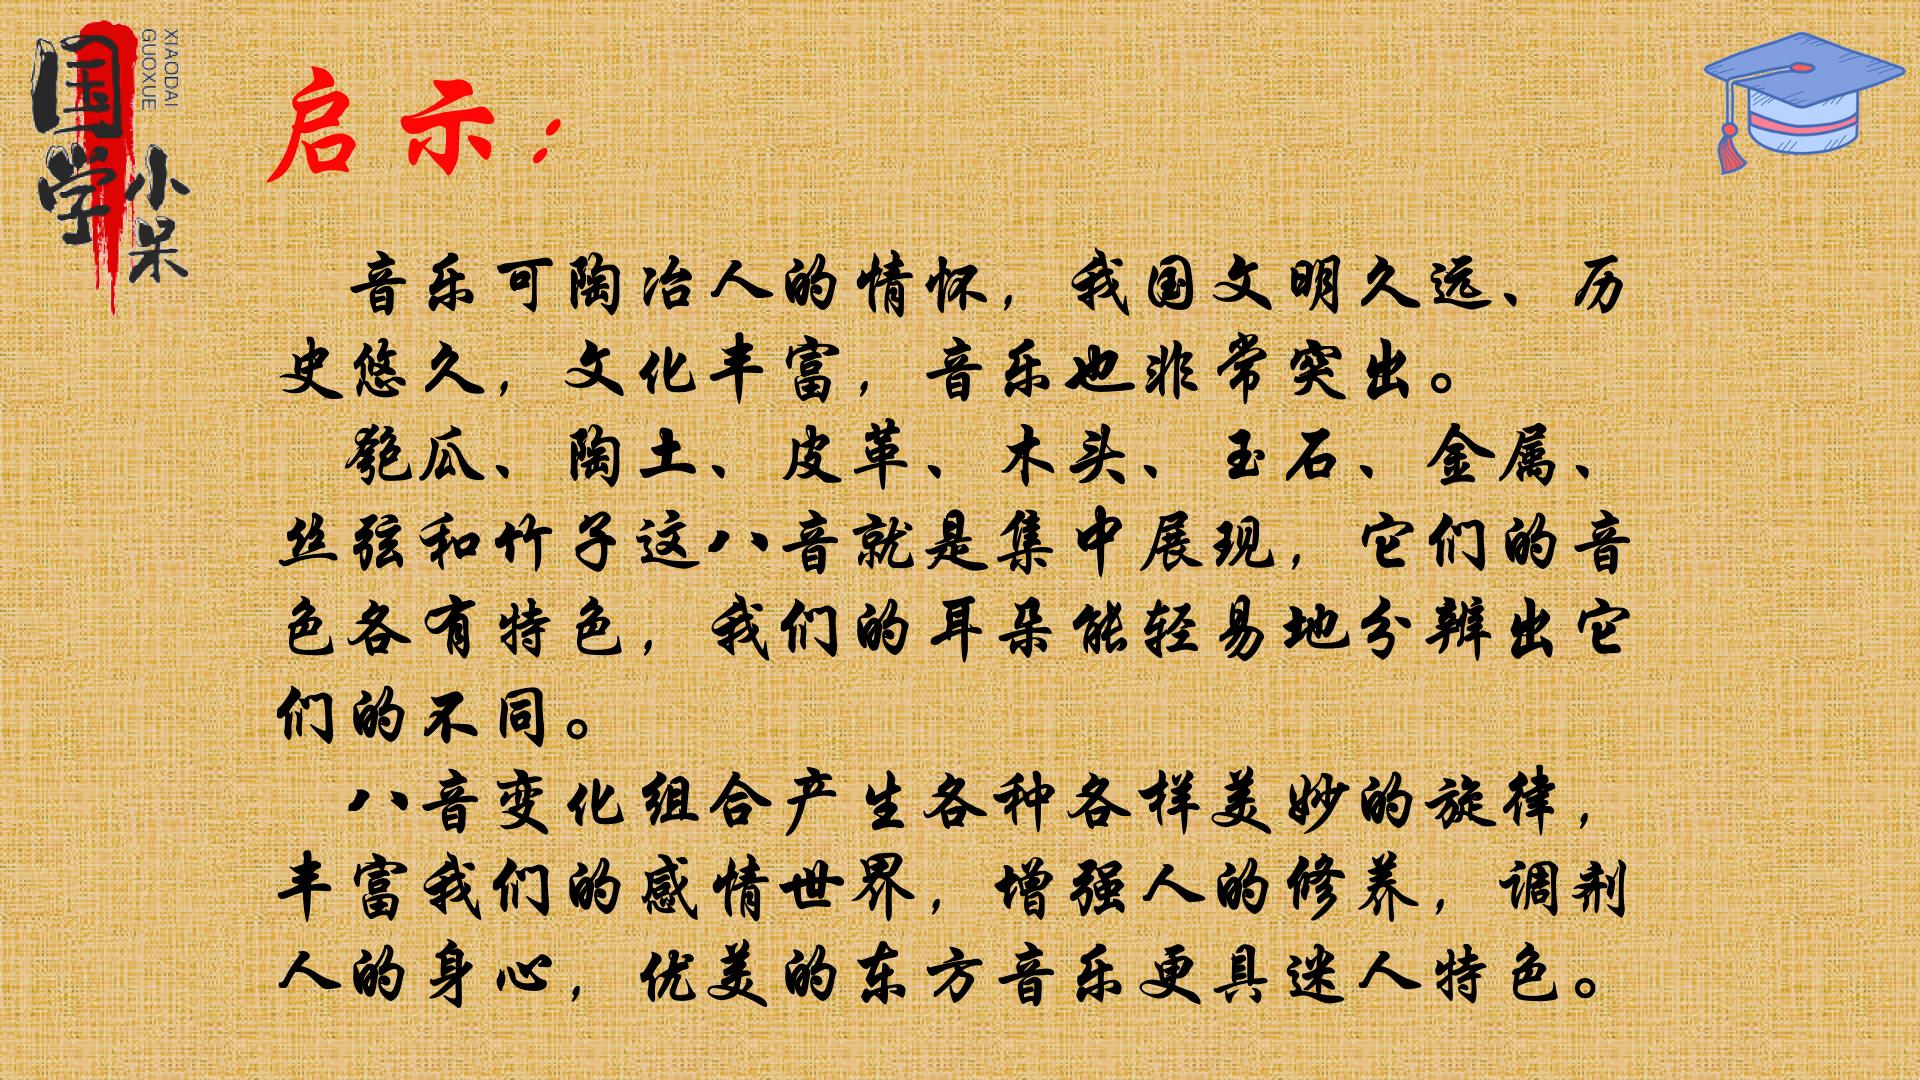 国学
小呆
XIAODAI
GUOXUE
启示：
音乐可陶冶人的情怀，我国文明久远、历
史悠久，文化丰富，音乐也非常突出。
匏瓜、陶土、皮革、木头、玉石、金属、
丝弦和竹子这八音就是集中展现，它们的音
色各有特色，我们的耳朵能轻易地分辨出它
们的不同。
八音变化组合产生各种各样美妙的旋律，
丰富我们的感情世界，增强人的修养，调剂
人的身心，优美的东方音乐更具迷人特色。